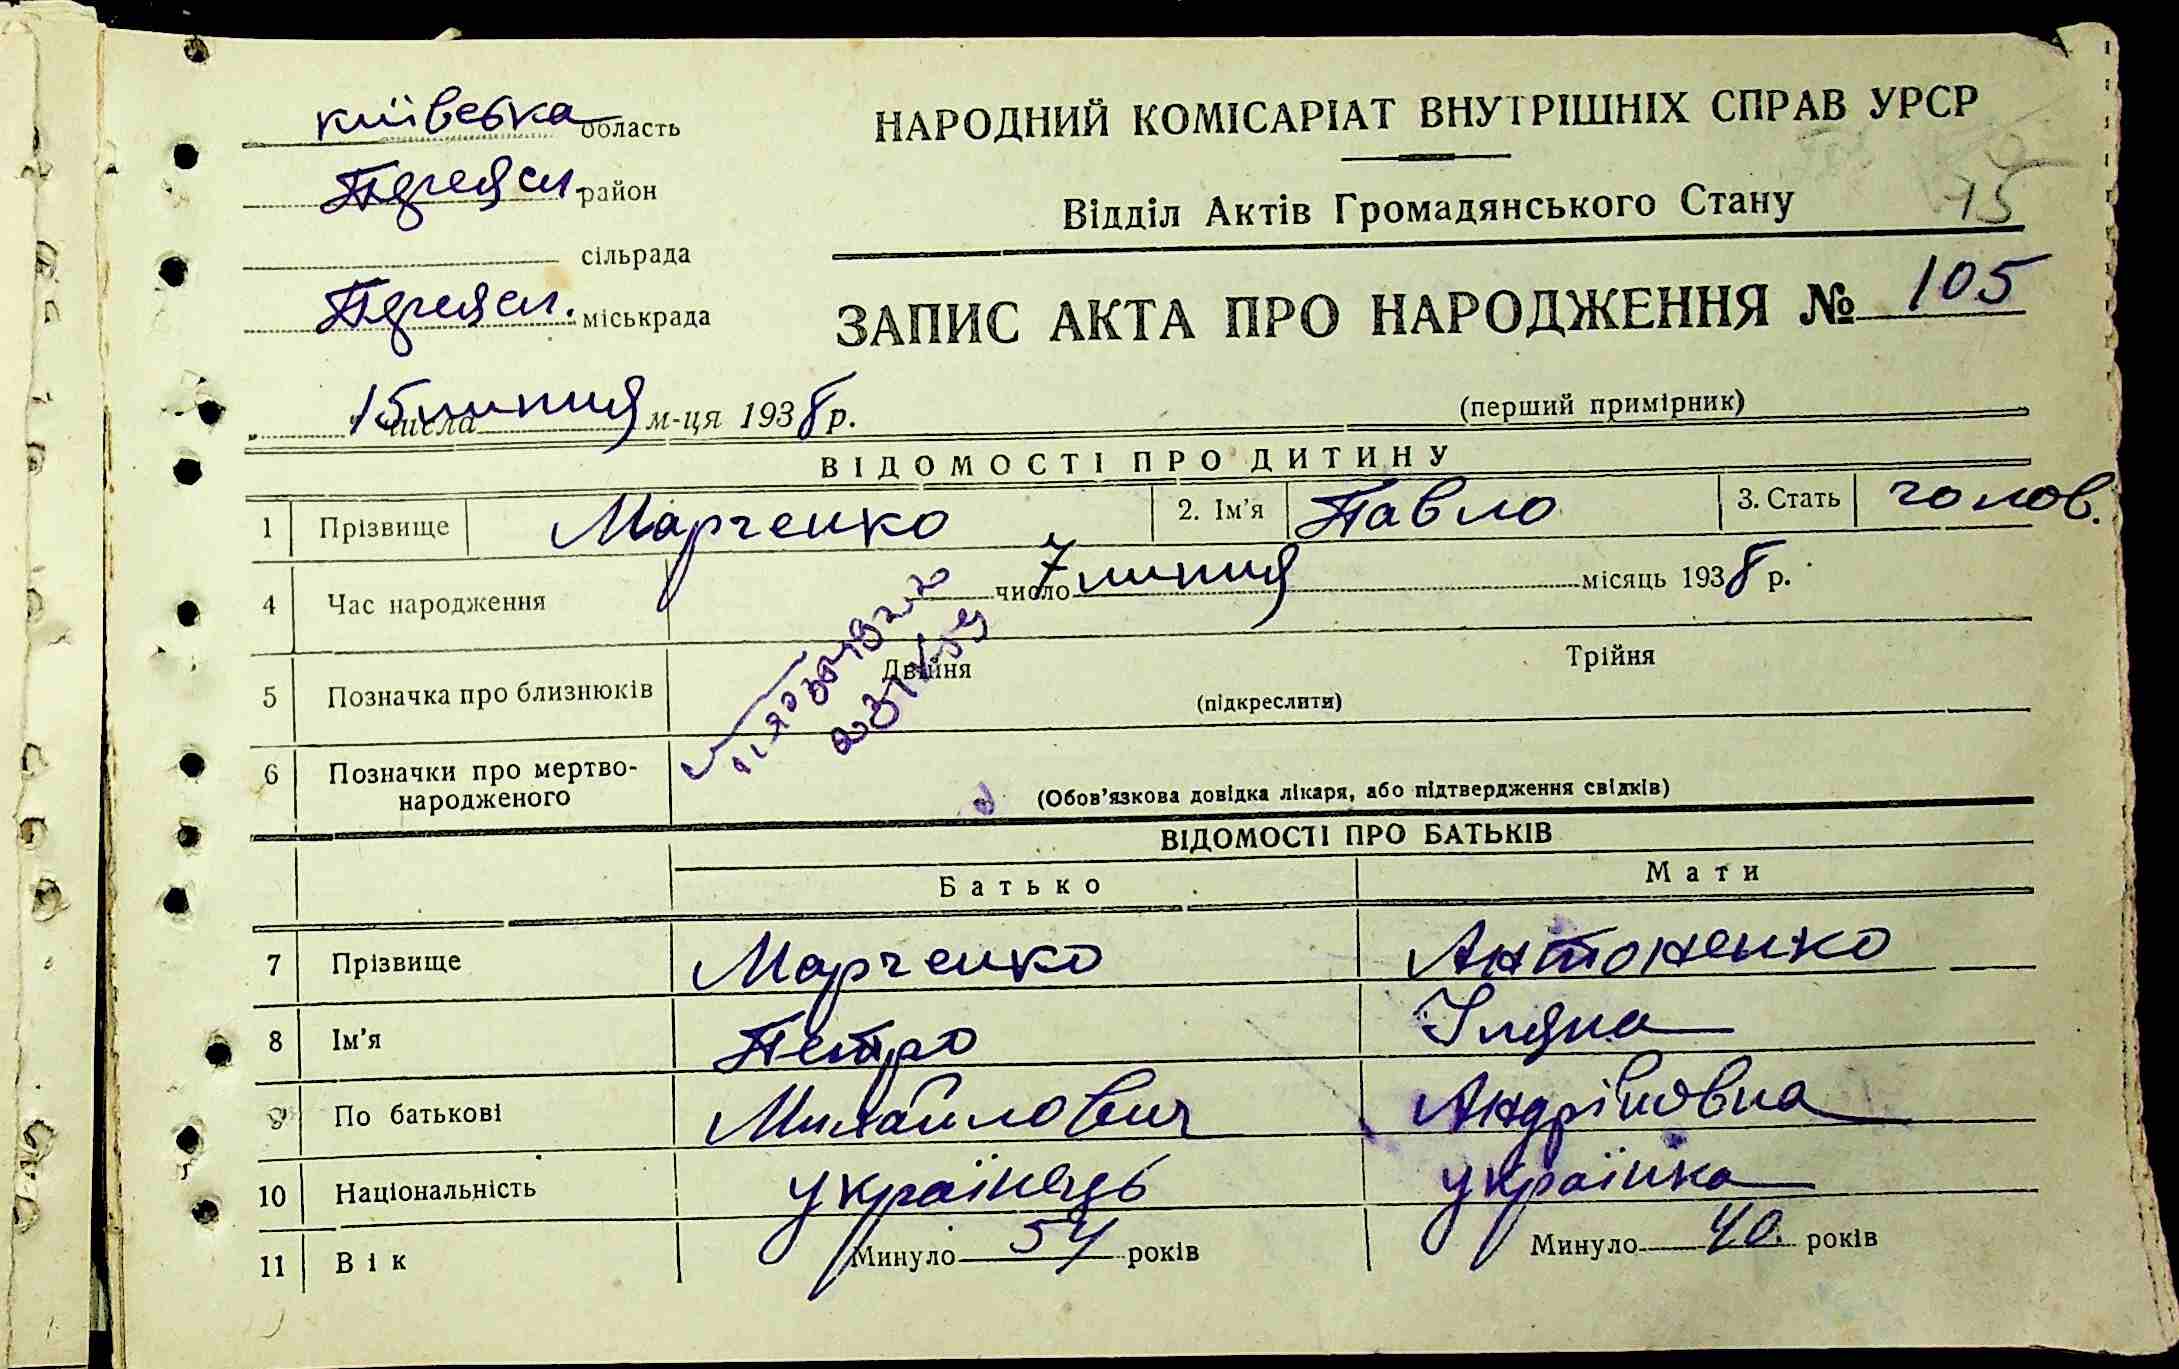 Київська область
район
сільрада
міськрада
НАРОДНИЙ КОМІСАРІАТ ВНУТРІШНІХ СПРАВ УРСР
Відділ Актів Громадянського Стану
75
ЗАПИС АКТА ПРО НАРОДЖЕННЯ № 105
„ 15 числа липня м-ця 1938 р.
(перший примірник)
ВІДОМОСТІ ПРО ДИТИНУ
1 Прізвище Марченко 2. Ім'я Павло 3. Стать чолов.
4 Час народження число 7 липня місяць 1938 р.
5 Позначка про близнюків Двійня Трійня
(підкреслити)
6 Позначки про мертво-
народженого
(Обов'язкова довідка лікаря, або підтвердження свідків)
ВІДОМОСТІ ПРО БАТЬКІВ
Батько Мати
7 Прізвище Марченко Антоненко
8 Ім'я Петро Іляна
9 По батькові Михайлович Андріївна
10 Національність українець українка
11 Вік Минуло 54 років Минуло 40. років